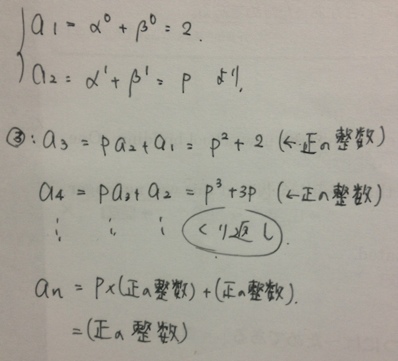 a₁ = α⁰ + β⁰ = 2.
a₂ = α¹ + β¹ = p より,
③: a₃ = pa₂ + a₁ = p² + 2 (←正の整数)
a₄ = pa₃ + a₂ = p³ + 3p (←正の整数)
⋮ ⋮ ⋮ くり返し.
aₙ = p×(正の整数) + (正の整数).
= (正の整数)